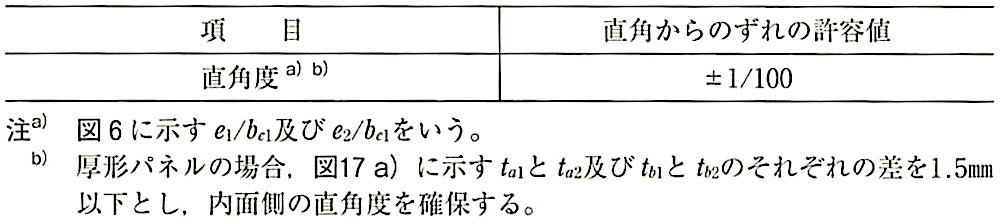 項　　目　直角からのずれの許容値
直角度 a) b)　±1/100
注a)　図6に示す e1/bc1及び e2/bc1をいう。
b)　厚形パネルの場合，図17 a）に示す ta1と ta2及び tb1と tb2のそれぞれの差を1.5mm
以下とし，内面側の直角度を確保する。